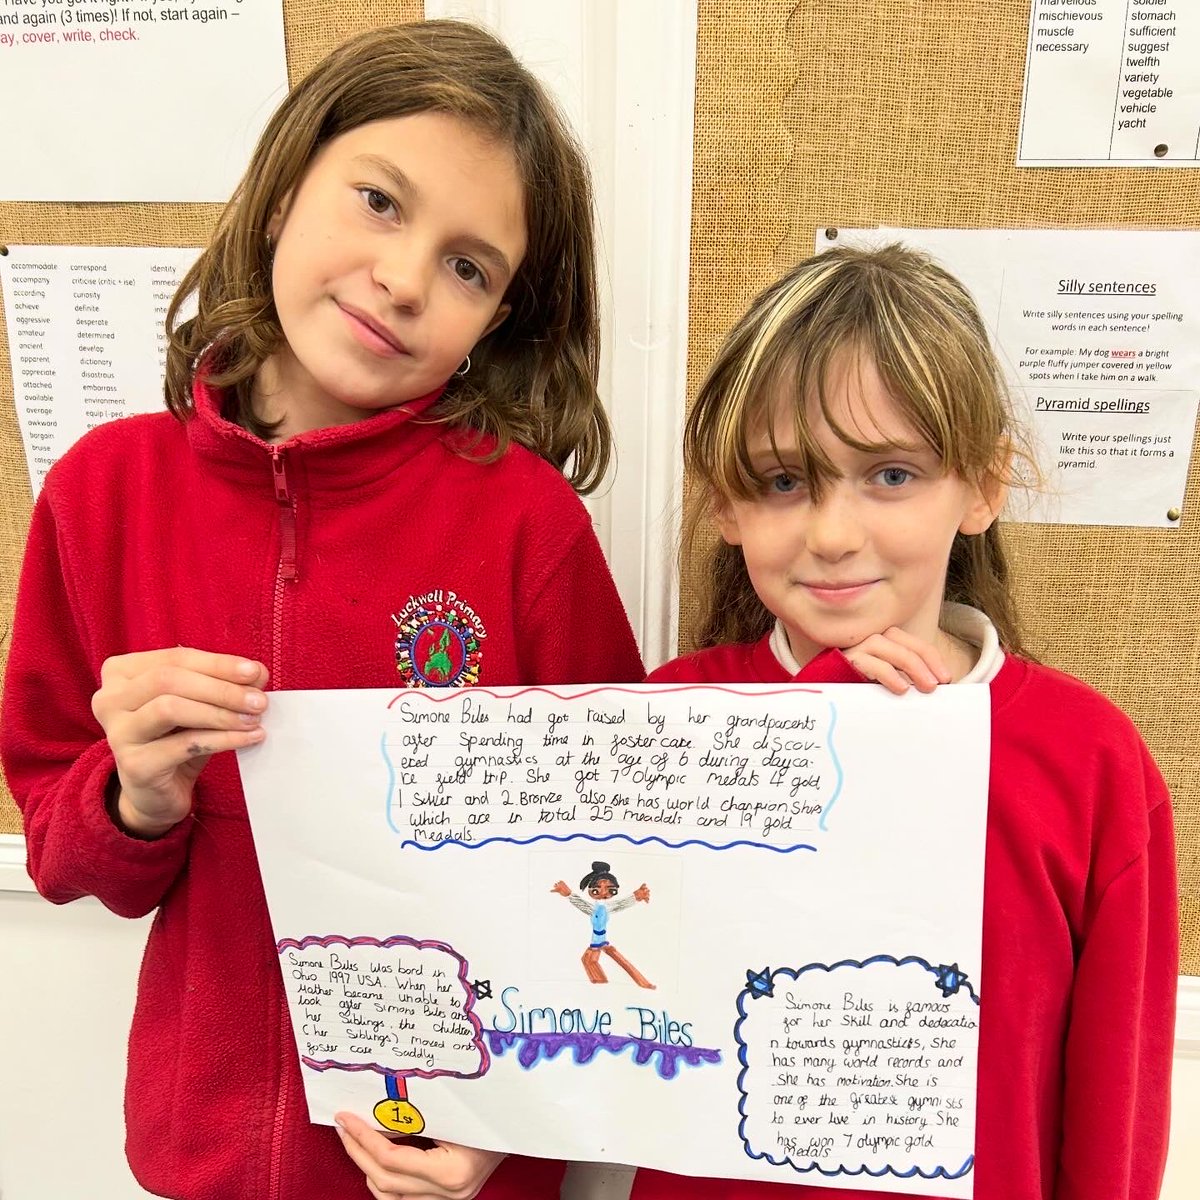 and again (3 times)! If not, start again –
ay, cover, write, check.
marvellous
mischievous
muscle
necessary
soldier
stomach
sufficient
suggest
twelfth
variety
vegetable
vehicle
yacht
accommodate
accompany
according
achieve
aggressive
amateur
ancient
apparent
appreciate
attached
available
average
awkward
bargain
bruise
correspond
criticise (critic + ise)
curiosity
definite
desperate
determined
develop
dictionary
disastrous
embarrass
environment
identity
Silly sentences
Write silly sentences using your spelling
words in each sentence!
For example: My dog wears a bright
purple fluffy jumper covered in yellow
spots when I take him on a walk.
Pyramid spellings
Write your spellings just
like this so that it forms a
pyramid.
Luckwell Primary
Simone Biles had got raised by her grandparents
after spending time in foster care. She discov-
ered gymnastics at the age of 6 during dayca-
re field trip. She got 7 Olympic medals 4 gold,
1 Silver and 2 Bronze also she has world championships
which are in total 25 meadals and 19 gold
meadals.
Simone Biles was bord in
Ohio 1997 USA. When her
Mather became unable to
look after Simone Biles and
her Siblings, the children
(her Siblings) moved onto
foster care Saddly
1st
Simone Biles
Simone Biles is famous
for her Skill and dedecatio
n towards gymnasticts, She
has many world records and
She has motivation. She is
one of the greatest gymnists
to ever live in history She
has won 7 olympic gold
Medals